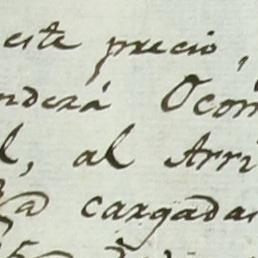 este precio,
nderá Ocon
l, al Arri
@ cargada